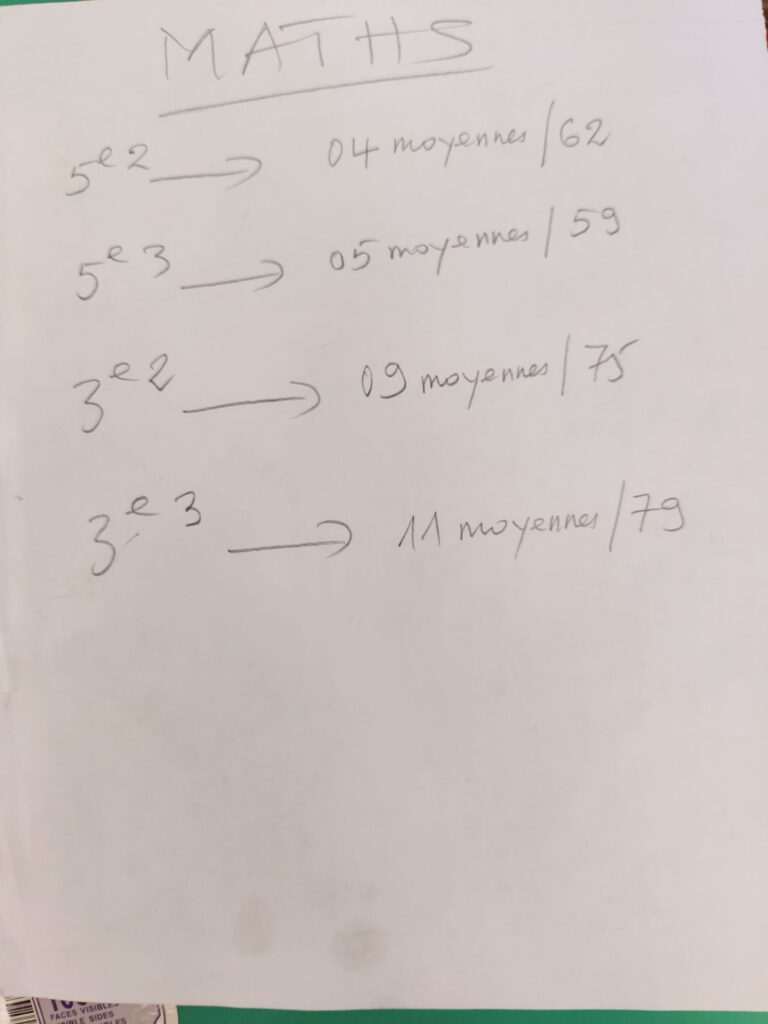 MATHS
5e2 → 04 moyennes/62
5e3 → 05 moyennes/59
3e2 → 09 moyennes/75
3e3 → 11 moyennes/79
FACES VISIBLES
SIDES